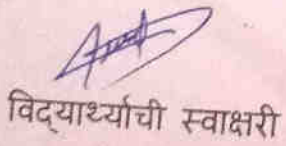 विद्‌यार्थ्याची स्वाक्षरी